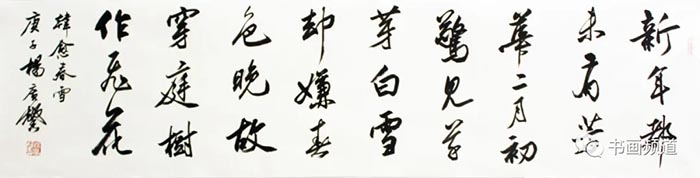 新年都
未有芳
華二月初
驚見草
芽白雪
却嫌春
色晚故
穿庭樹
作飛花
韓愈春雪
庚子楊廣馨
书画频道